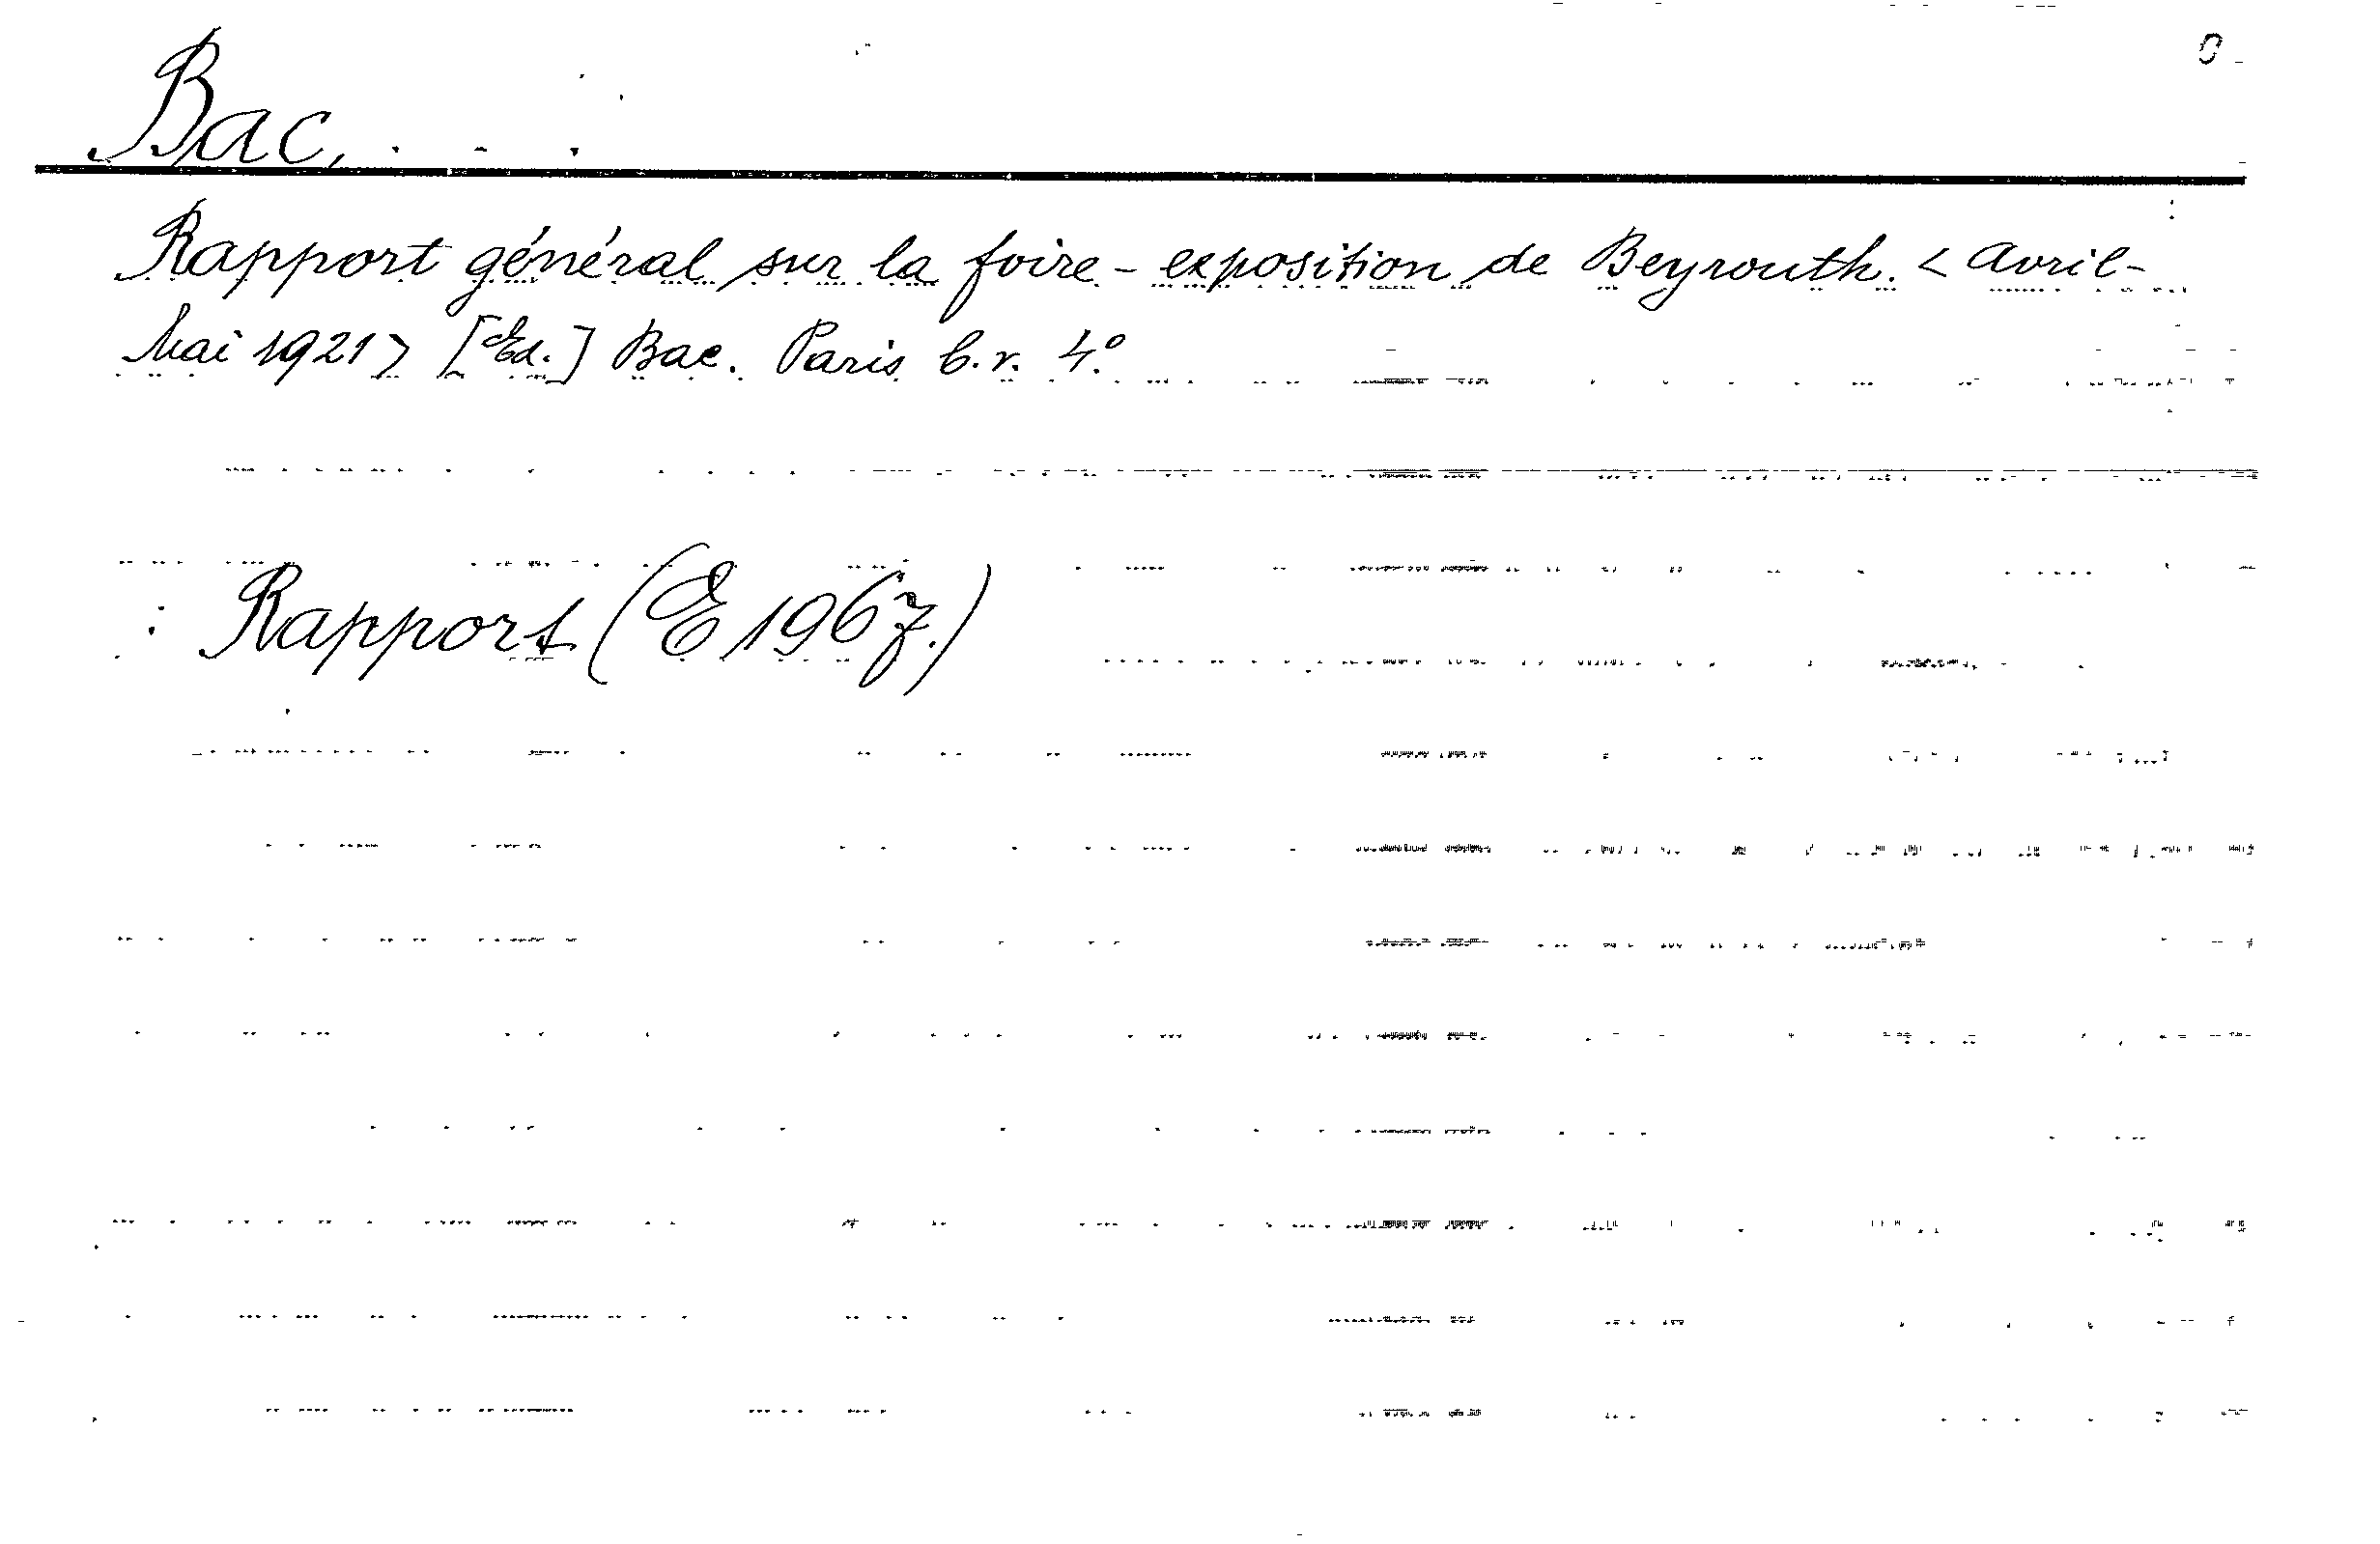 Bac, . . .
Rapport général sur la foire-exposition de Beyrouth. < Avril-
Mai 1921 > [Ed.] Bac. Paris b.r. 4.°
: Rapport (E 1967.)